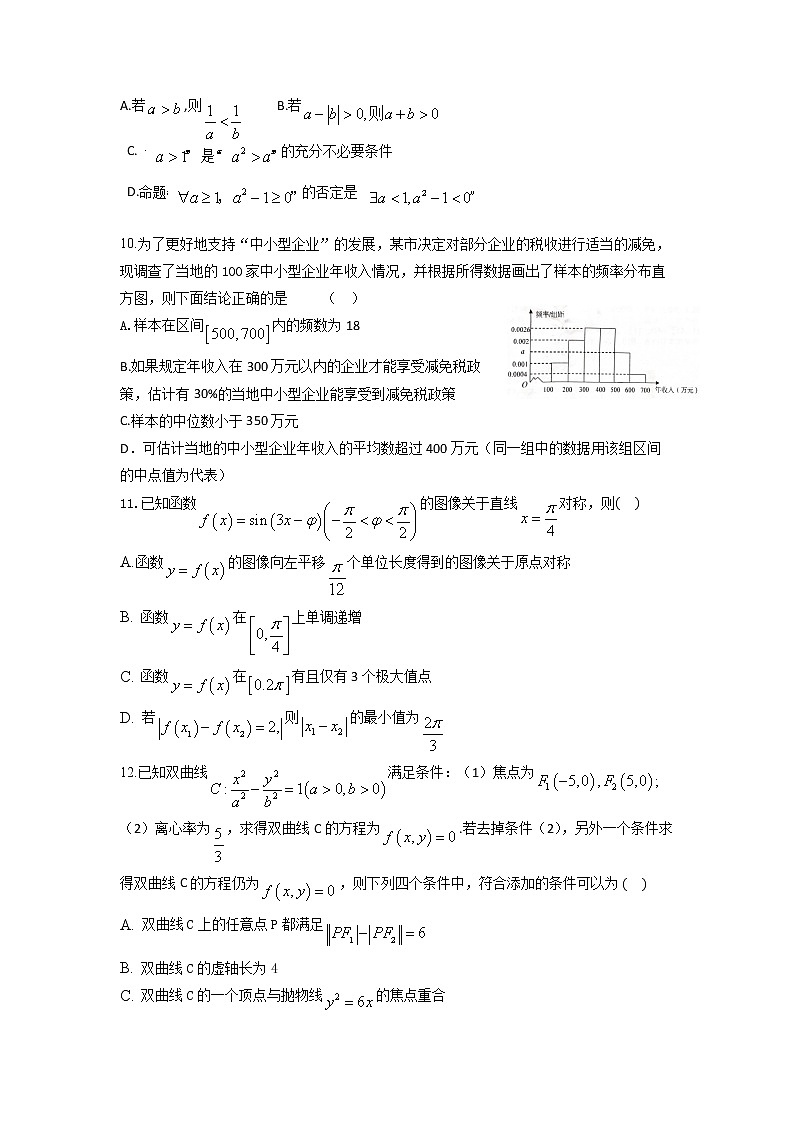 A.若 a > b ,则 1/a < 1/b B.若 a − |b| > 0, 则 a + b > 0
C. “ a > 1” 是“ a² > a” 的充分不必要条件
D.命题“ ∀a ≥ 1, a² − 1 ≥ 0” 的否定是 ∃a < 1, a² − 1 < 0”
10.为了更好地支持“中小型企业”的发展，某市决定对部分企业的税收进行适当的减免，
现调查了当地的 100 家中小型企业年收入情况，并根据所得数据画出了样本的频率分布直
方图，则下面结论正确的是 （ ）
A. 样本在区间[500,700]内的频数为 18
B.如果规定年收入在 300 万元以内的企业才能享受减免税政
策，估计有 30%的当地中小型企业能享受到减免税政策
C.样本的中位数小于 350 万元
D．可估计当地的中小型企业年收入的平均数超过 400 万元（同一组中的数据用该组区间
的中点值为代表）
频率/组距
0.0026
0.002
a
0.001
0.0004
O 100 200 300 400 500 600 700 年收入（万元）
11.已知函数 f(x) = sin(3x − φ)(−π/2 < φ < π/2) 的图像关于直线 x = π/4 对称，则( )
A.函数 y = f(x) 的图像向左平移 π/12 个单位长度得到的图像关于原点对称
B. 函数 y = f(x) 在 [0, π/4] 上单调递增
C. 函数 y = f(x) 在 [0.2π] 有且仅有 3 个极大值点
D. 若 |f(x₁) − f(x₂)| = 2, 则 |x₁ − x₂| 的最小值为 2π/3
12.已知双曲线 C : x²/a² − y²/b² = 1(a > 0, b > 0) 满足条件:（1）焦点为 F₁(−5,0) , F₂(5,0) ;
（2）离心率为 5/3 ，求得双曲线 C 的方程为 f(x, y) = 0 .若去掉条件（2），另外一个条件求
得双曲线 C 的方程仍为 f(x, y) = 0 ，则下列四个条件中，符合添加的条件可以为 ( )
A. 双曲线 C 上的任意点 P 都满足 ||PF₁| − |PF₂|| = 6
B. 双曲线 C 的虚轴长为 4
C. 双曲线 C 的一个顶点与抛物线 y² = 6x 的焦点重合